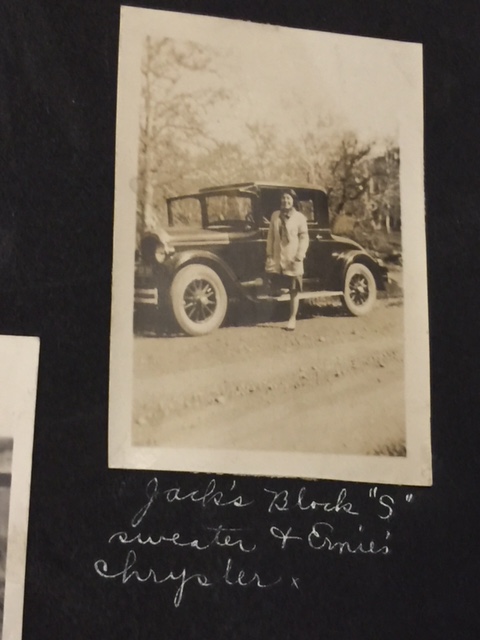 Jack's Block "S"
sweater & Ernie's
chrysler x